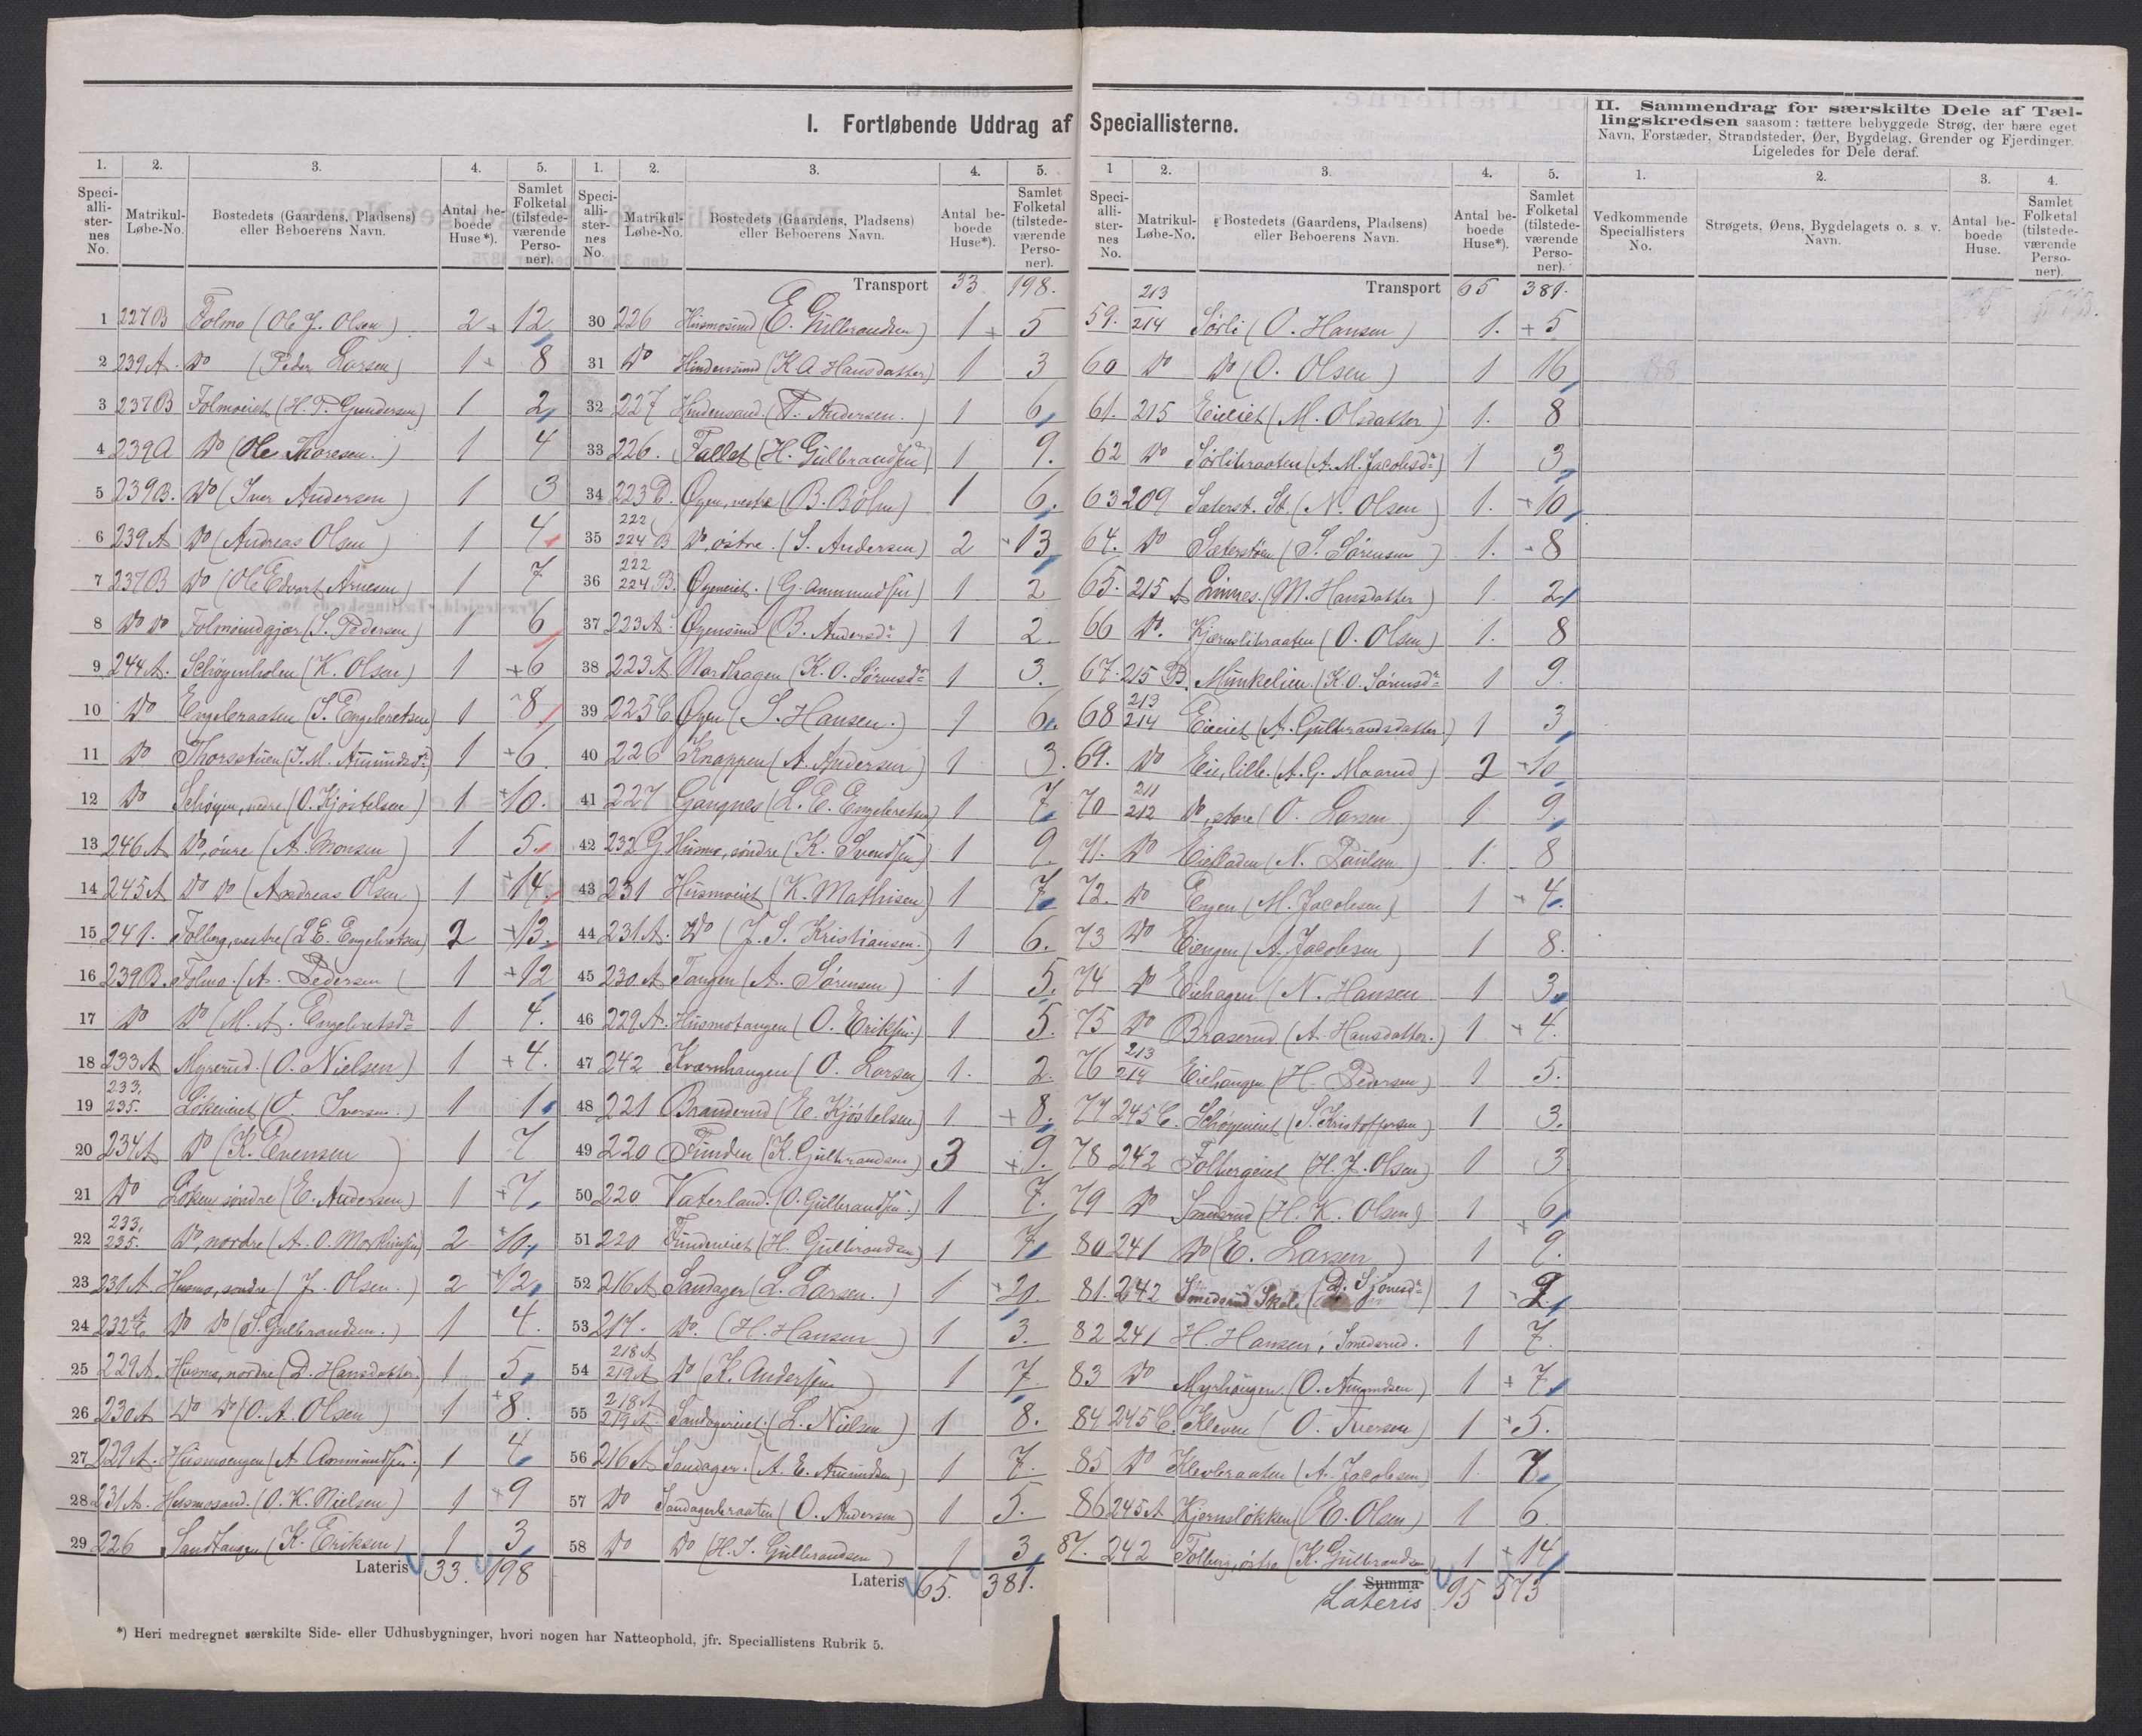 I. Fortløbende Uddrag af Speciallisterne.
II. Sammendrag for særskilte Dele af Tæl-
lingskredsen saasom: tættere bebyggede Strøg, der bære eget
Navn, Forstæder, Strandsteder, Øer, Bygdelag, Grender og Fjerdinger.
Ligeledes for Dele deraf.
1. 2. 3. 4. 5.
Speci-alli-ster-nes No. Matrikul-Løbe-No. Bostedets (Gaardens, Pladsens) eller Beboerens Navn. Antal be-boede Huse*). Samlet Folketal (tilstede-værende Perso-ner).
1 227B Folmo (Ole J. Olsen) 2 + 12
2 239A. Do (Peder Larsen) 1 + 8
3 237B Folmoeiet (H. P. Gundersen) 1 2
4 239A Do (Ole Thoresen.) 1 4
5 239B. Do (Iver Andersen) 1 3
6 239A Do (Andreas Olsen) 1 4
7 237B Do (Ole Edvart Arnesen) 1 7
8 Do Do (S. Pedersen) 1 6
9 244A. Schøyenholen (K. Olsen) 1 +6
10 Do Engebraaten (S. Engebretsen) 1 8
11 Do Thorsstuen (J. M. Amundsdr) 1 +6.
12 Do Schøyen, nedre (O. Kjøstelsen) 1 +10.
13 246A Do, øvre (A. Monsen) 1 5.
14 245A Do Do (Andreas Olsen) 1 +14.
15 241. Folberg, vestre (L. E. Engebretsen) 2 +13.
16 239B. Folmo. (A. Pedersen ( 1 +12
17 Do Do (M. A. Engebretsdr 1 4.
18 233A Myrerud. (O. Nielsen) 1 +4.
19 233. 235. Løkeneiet (O. Iversen.) 1 1
20 234A Do (K. Evensen) 1 7
21 Do Løken, søndre (E. Andersen) 1 +7
22 233. 235. Do, nordre (A. O. Marthinsen) 2 +10.
23 231A. Husmo, søndre (J. Olsen.) 2 +12
24 232 Do Do (S. Gulbrandsen.) 1 4.
25 229A. Husmo, nordre (D. Hansdatter) 1 5
26 230A Do Do (O. A. Olsen) 1 +8.
27 229A. Husmoengen (A. Ammundsen.) 1 4
28 231A. Husmosand. (O. K. Nielsen) 1 +9
29 226 Sandtangen (K. Eriksen) 1 3
Lateris 33. 198
1. 2. 3. 4. 5.
Speci-alli-ster-nes No. Matrikul-Løbe-No. Bostedets (Gaardens, Pladsens) eller Beboerens Navn. Antal be-boede Huse*). Samlet Folketal (tilstede-værende Perso-ner).
Transport 33 198.
30 226 Husmosund (E. Gulbrandsen) 1 + 5
31 Do (K. A. Hansdatter) 1 3
32 227 Hindensand. (T. Andersen.) 1 6
33 226. Fallet (H. Gulbrandsen) 1 9.
34 223B. Øyen, vestre (B. Bølm) 1 6.
35 222 224B Do, østre. (S. Andersen) 2 +13
36 222 224.B. Øyeneiet. (G. Ammundsen) 1 2
37 223A Øyensund (B. Andersdr) 1 2.
38 223A Nordhagen (K. O. Sørensdr 1 3.
39 225C Øyen (S. Hansen.) 1 6.
40 226 Knappen (A. Andersen) 1 3.
41 227 Gangnes (L. E. Engebretsen) 1 7
42 232G Husmo, søndre (K. Svendsen) 1 9.
43 231 Husmoeiet (K. Mathisen) 1 7
44 231A. Do (J. S. Kristiansen.) 1 6.
45 230A Tangen (A. Sørensen) 1 5.
46 229A. Husmotangen (O. Eriksen.) 1 5.
47 242 Kværnhaugen (O. Larsen) 1. 2.
48 221 Branderud (E. Kjøstelsen) 1 + 8.
49 220 Funden (K. Gulbrandsen) 3 +9.
50 220 Vaterland. (O. Gulbrandsen.) 1 7.
51 220 Fundeneiet (H. Gulbrandsen) 1 7
52 216A Sandager (L. Larsen.) 1 +21.
53 217. Do. (H. Hansen) 1 3.
54 218A 219A Do (K. Andersen) 1 7.
55 218A 219A Sandagereiet. (L. Nielsen) 1 8.
56 216A Sandager. (A. E. Amundsen) 1 7.
57 Do Sandagerbraaten (O. Andersen) 1 5.
58 Do Do (H. J. Gulbrandsen) 1 3
Lateris 65. 381.
1 2. 3. 4. 5.
Speci-alli-ster-nes No. Matrikul-Løbe-No. Bostedets (Gaardens, Pladsens) eller Beboerens Navn. Antal be-boede Huse*). Samlet Folketal (tilstede-værende Perso-ner).
Transport 65 381.
59. 213 214 Sørli (O. Hansen) 1. + 5
60 Do Do (O. Olsen) 1 16
61. 215 Eieeiet (M. Olsdatter) 1. 8
62 Do Sørlibraaten (A. M. Jacobsdr) 1 3
63 209 Sæterst. St. (N. Olsen) 1. +10
64. Do Sæterstøen (S. Sørensen) 1. 8
65. 215A Linnes. (M. Hansdatter) 1. 2
66 Do. Kjernslibraaten (O. Olsen) 1. 8
67. 215B. Munkelien. (K. O. Sørensdr 1 9.
68 213 214 Eieeiet (A. Gulbrandsdatter) 1 3
69. Do Eie, lille. (A. G. Maarud) 2 +10
70 211 212 Do, store (O. Larsen) 1 9.
71. Do (N. Paulsen) 1. 8
72. Do Engen (M. Jacobsen) 1 + 4.
73 Do Eiengen (A. Jacobsen) 1 8.
74 Do Eiehagen (N. Hansen 1 3.
75 Do Braserud (A. Hansdatter.) 1 + 4.
76 213 214 Eiehaugen (H. Pedersen) 1 5.
77 245C. Schøyeneiet (S. Kristoffersen) 1 3.
78 242 Folbergeiet (H. J. Olsen) 1 3
79 Do Smedsrud (H. K. Olsen) 1 6
80 241 Do (E. Larsen) 1 + 9.
81. 242 Smedsrud Skole 1 2
82 241 H. Hansen i Smedsrud. 1 7.
83 Do Myrhaugen. (O. Amundsen) 1 + 7
84 245C. Kleven (O. Iversen) 1 + 5.
85 Do Klevbraaten (A. Jacobsen) 1. 7.
86 245A Kjernsløkken (E. Olsen) 1 6.
87. 242 Folberg, østre (K. Gulbrandsen) 1 + 14
Summa
Lateris 95 573
1. 2. 3. 4.
Vedkommende Speciallisters No. Strøgets, Øens, Bygdelagets o. s. v. Navn. Antal be-boede Huse. Samlet Folketal (tilstede-værende Perso-ner).
*) Heri medregnet særskilte Side- eller Udhusbygninger, hvori nogen har Natteophold, jfr. Speciallistens Rubrik 5.